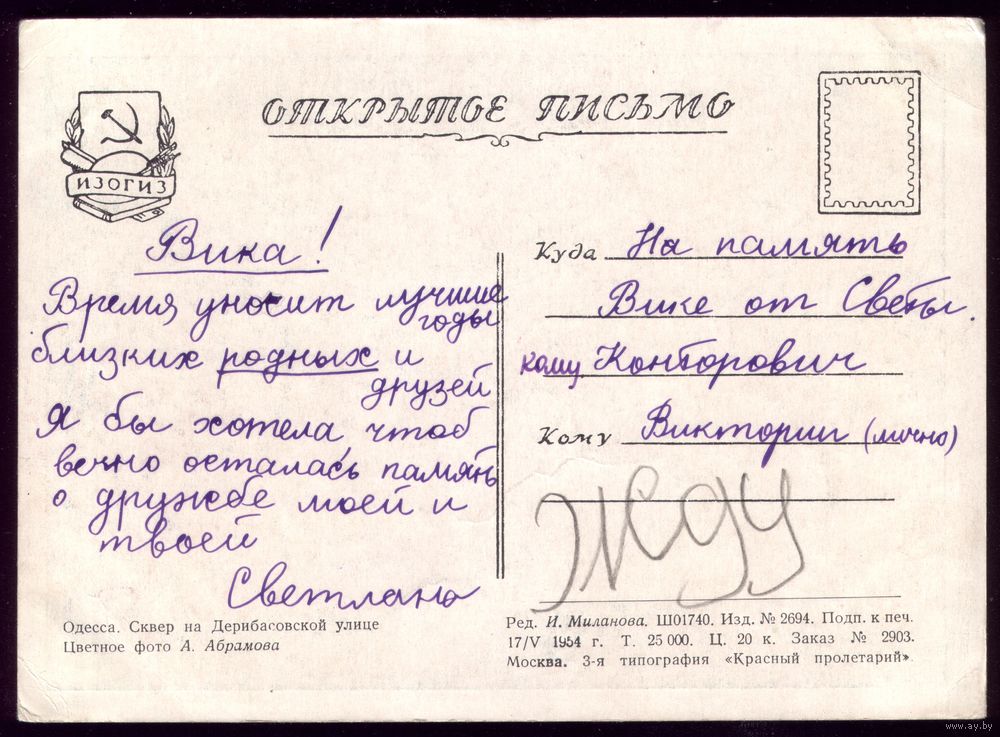 ОТКРЫТОЕ ПИСЬМО
ИЗОГИЗ
Вика!
Время уносит лучшие
годы
близких родных и
друзей
Я бы хотела чтоб
вечно осталась память
о дружбе моей и
твоей
Светлана
Одесса. Сквер на Дерибасовской улице
Цветное фото А. Абрамова
Куда На память
Вике от Светы.
кому Конторович
Кому Виктории (лично)
Жду
Ред. И. Миланова. Ш01740. Изд. № 2694. Подп. к печ.
17/V 1954 г. Т. 25 000. Ц. 20 к. Заказ № 2903.
Москва. 3-я типография «Красный пролетарий».
www.ay.by